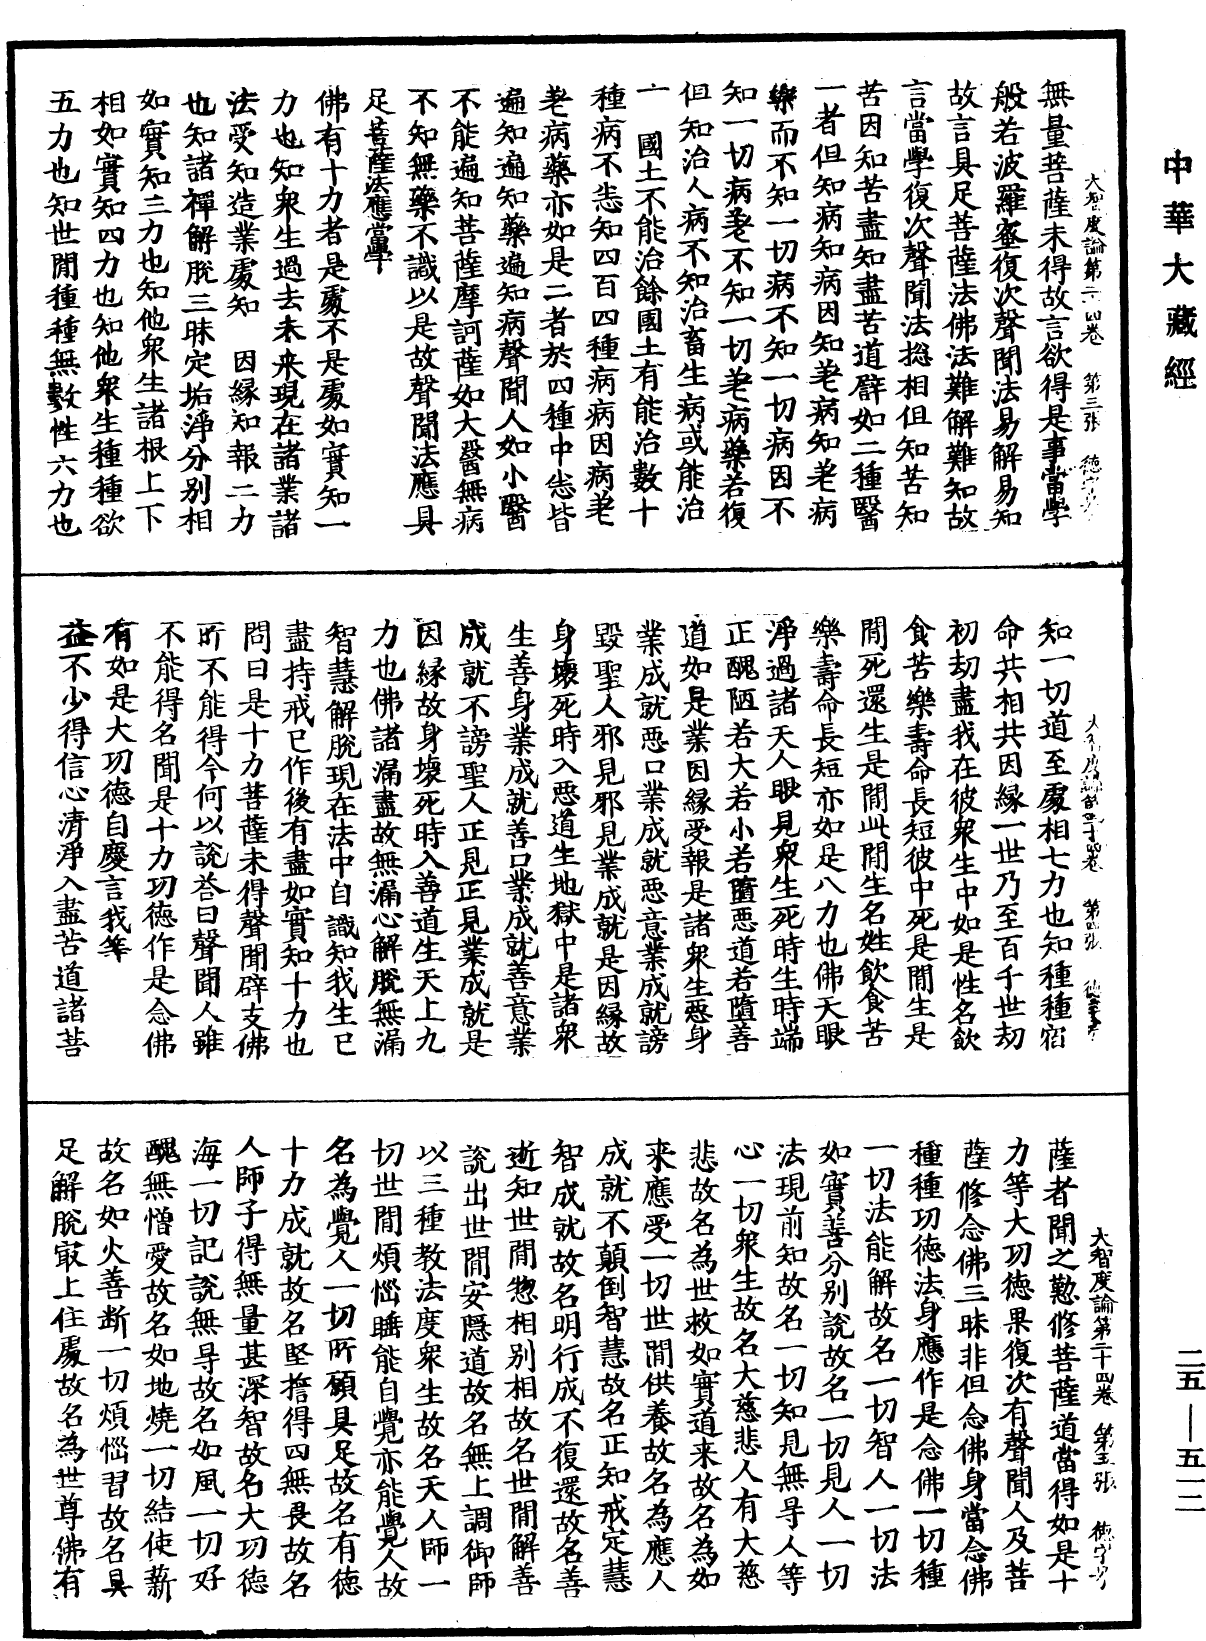 中華大藏經
大智度論第二十四卷 第三張 德字号
無量菩薩未得故言欲得是事當學
般若波羅蜜復次聲聞法易解易知
故言具足菩薩法佛法難解難知故
言當學復次聲聞法揔相但知苦知
苦因知苦盡知盡苦道譬如二種醫
一者但知病知病因知差病知差病
藥而不知一切病不知一切病因不
知一切病差不知一切差病藥若復
但知治人病不知治畜生病或能治
一國土不能治餘國土有能治數十
種病不悉知四百四種病病因病差
差病藥亦如是二者於四種中悉皆
遍知遍知藥遍知病聲聞人如小醫
不能遍知菩薩摩訶薩如大醫無病
不知無藥不識以是故聲聞法應具
足菩薩法應當學
佛有十力者是處不是處如實知一
力也知衆生過去未來現在諸業諸
法受知造業處知因緣知報二力
也知諸禪解脫三昧定垢淨分別相
如實知三力也知他衆生諸根上下
相如實知四力也知他衆生種種欲
五力也知世間種種無數性六力也
大智度論第二十四卷 第四張 德字号
知一切道至處相七力也知種種宿
命共相共因緣一世乃至百千世劫
初劫盡我在彼衆生中如是性名飲
食苦樂壽命長短彼中死是間生是
間死還生是間此間生名姓飲食苦
樂壽命長短亦如是八力也佛天眼
淨過諸天人眼見衆生死時生時端
正醜陋若大若小若墮惡道若墮善
道如是業因緣受報是諸衆生惡身
業成就惡口業成就惡意業成就謗
毀聖人邪見邪見業成就是因緣故
身壞死時入惡道生地獄中是諸衆
生善身業成就善口業成就善意業
成就不謗聖人正見正見業成就是
因緣故身壞死時入善道生天上九
力也佛諸漏盡故無漏心解脫無漏
智慧解脫現在法中自識知我生已
盡持戒已作後有盡如實知十力也
問曰是十力菩薩未得聲聞辟支佛
所不能得今何以說荅曰聲聞人雖
不能得名聞是十力功德作是念佛
有如是大功德自慶言我等
益不少得信心清淨入盡苦道諸菩
大智度論第二十四卷 第五張 德字号
薩者聞之懃修菩薩道當得如是十
力等大功德果復次有聲聞人及菩
薩修念佛三昧非但念佛身當念佛
種種功德法身應作是念佛一切種
一切法能解故名一切智人一切法
如實善分別說故名一切見人一切
法現前知故名一切知見無㝵人等
心一切衆生故名大慈悲人有大慈
悲故名為世救如實道来故名為如
来應受一切世間供養故名為應人
成就不顛倒智慧故名正知戒定慧
智成就故名明行成不復還故名善
逝知世間揔相別相故名世間解善
說出世間安隱道故名無上調御師
以三種教法度衆生故名天人師一
切世間煩惱睡能自覺亦能覺人故
名為覺人一切所願具足故名有德
十力成就故名堅擔得四無畏故名
人師子得無量甚深智故名大功德
海一切記說無㝵故名如風一切好
醜無憎愛故名如地燒一切結使薪
故名如火善斷一切煩惱習故名具
足解脫㝡上住處故名為世尊佛有
二五—五一二